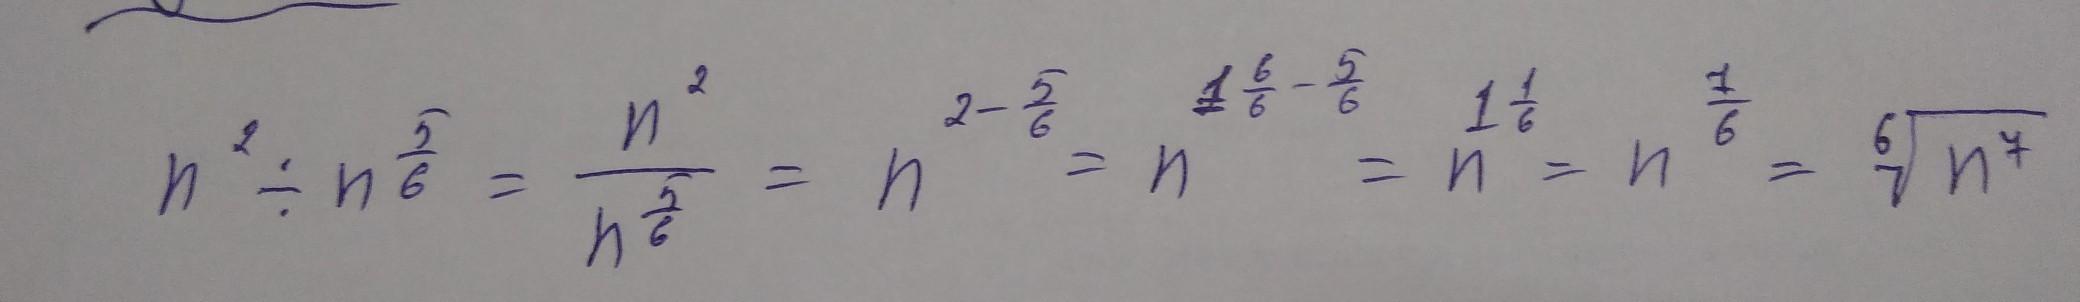 n² ÷ n^(5/6) = n²/n^(5/6) = n^(2 - 5/6) = n^(1 6/6 - 5/6) = n^(1 1/6) = n^(7/6) = ⁶√(n⁷)